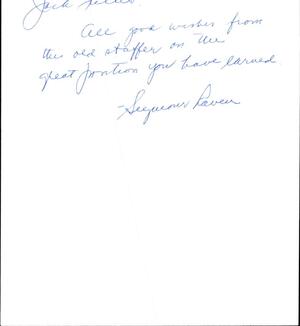 Jack
All good wishes from
this old staffer on the
great position you have earned.
-Seymour Raven